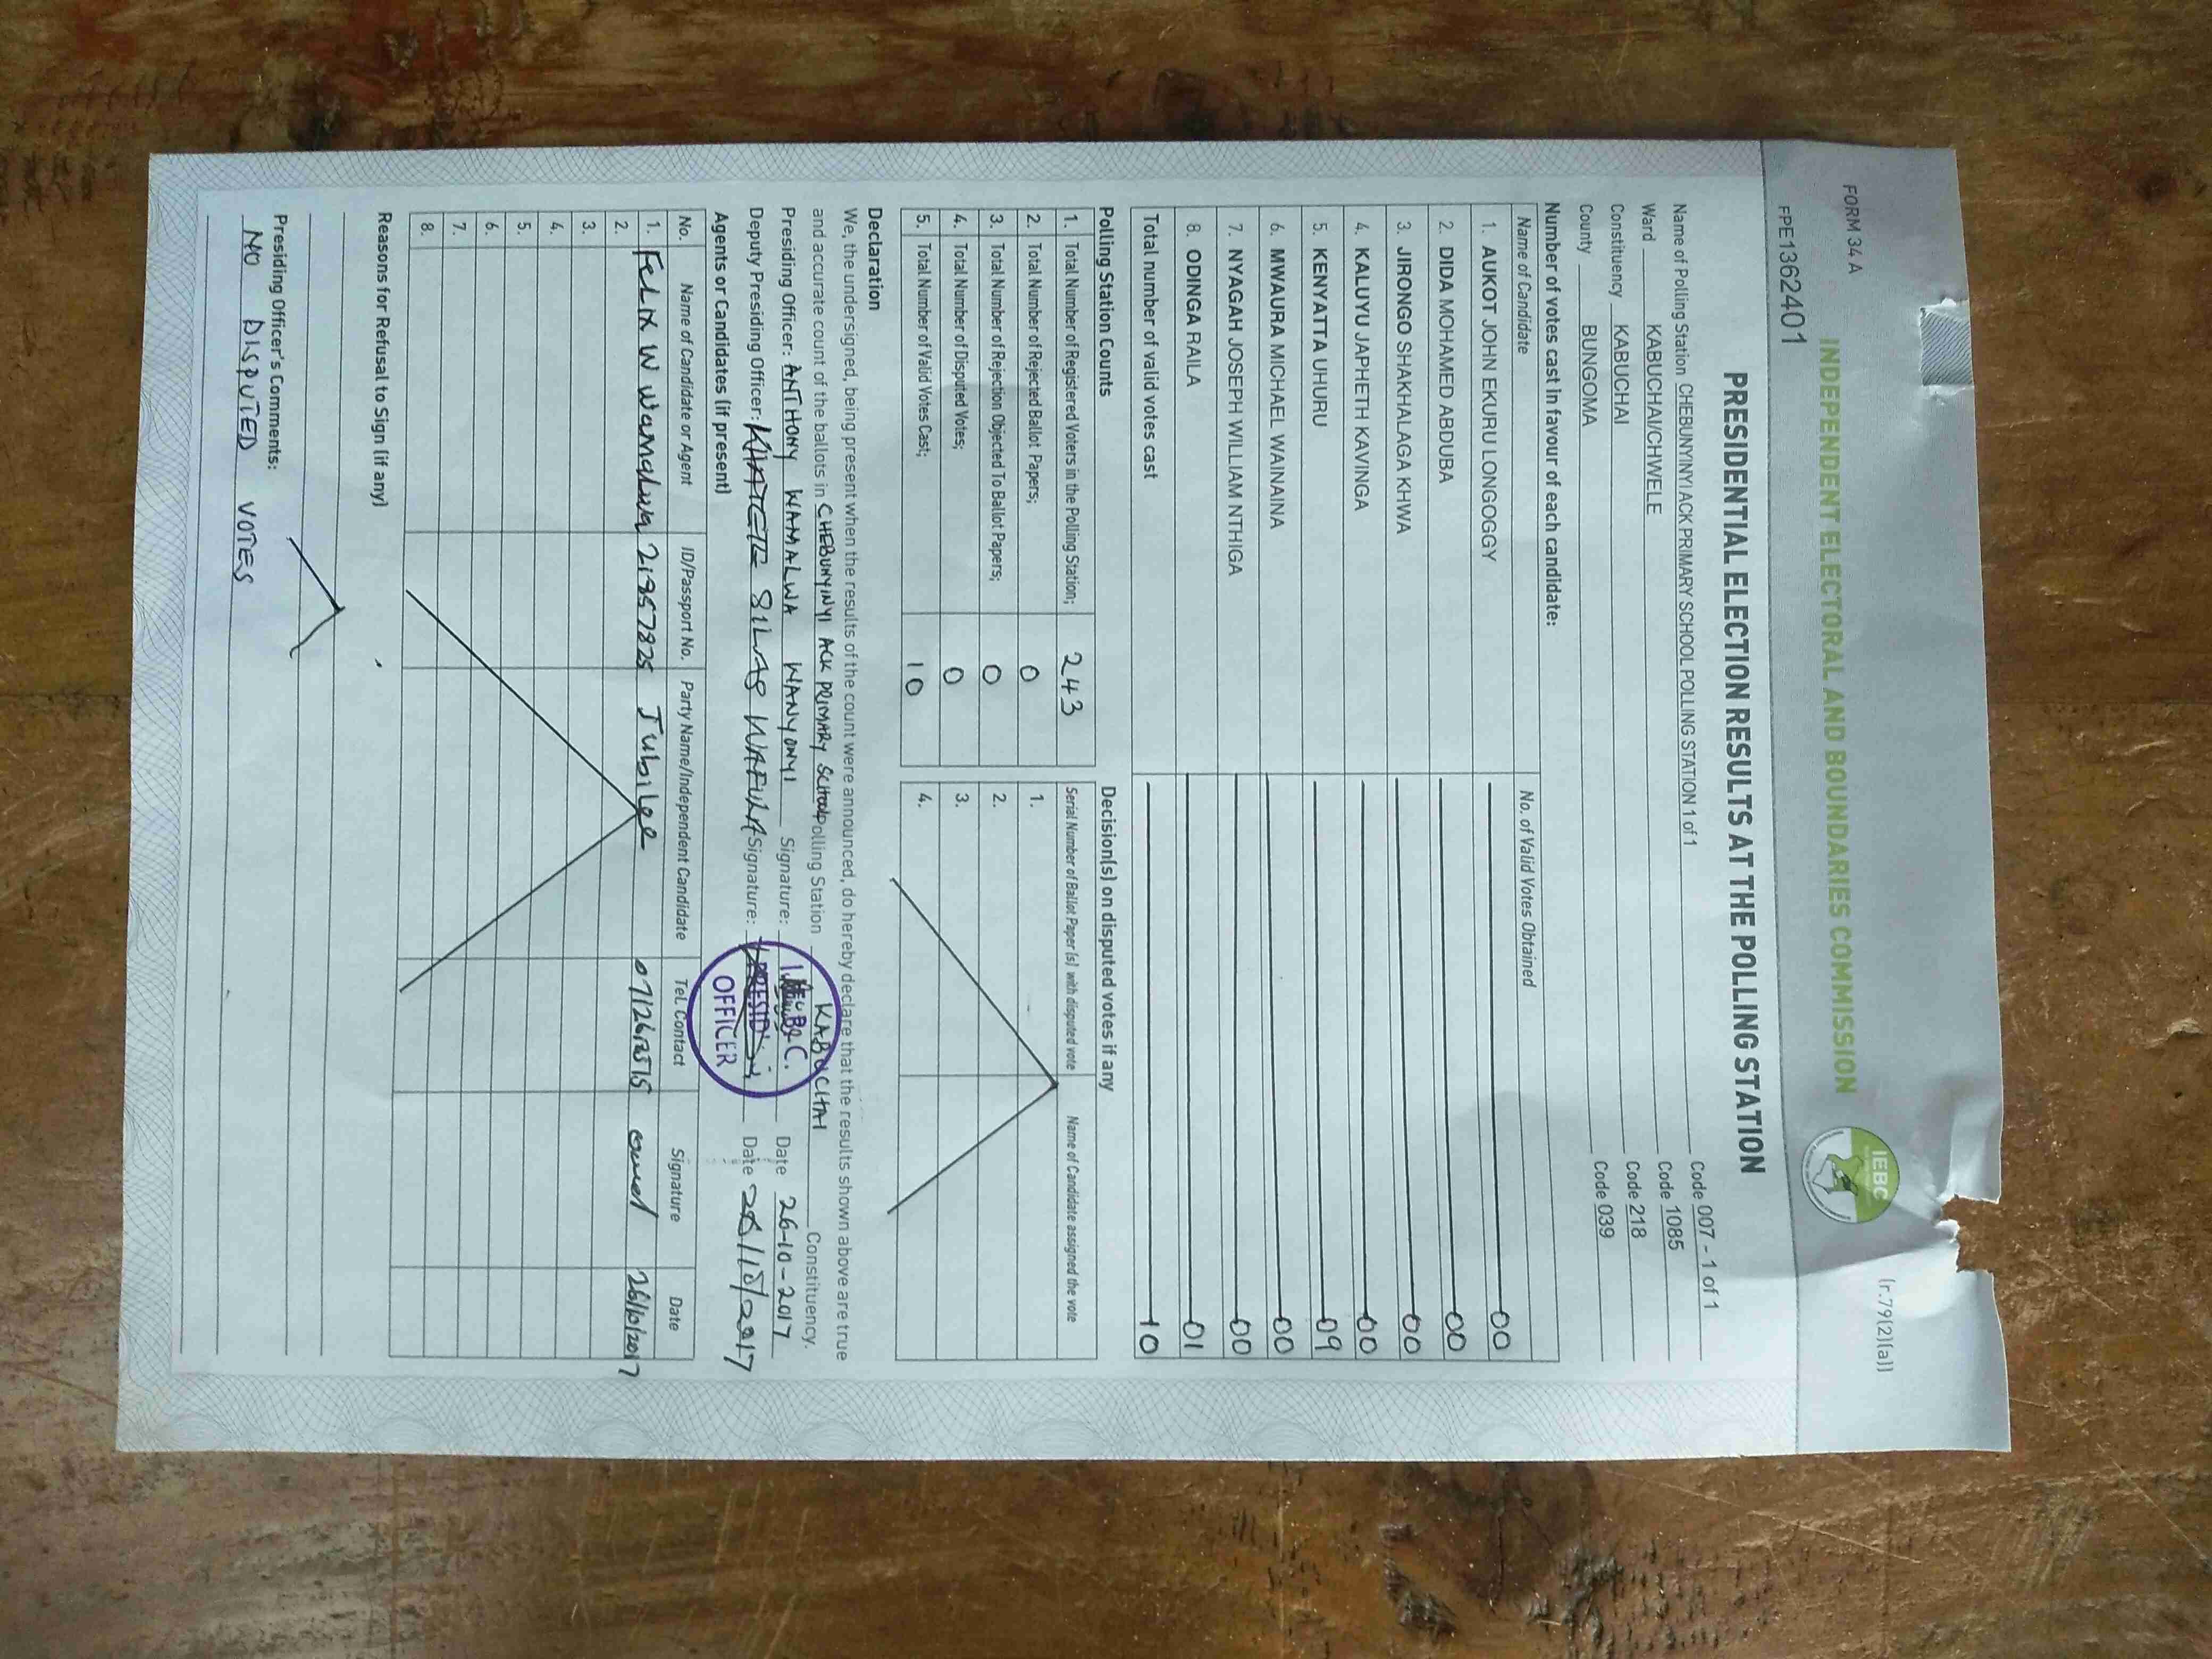 FORM 34 A
(r.79(2)(a))
INDEPENDENT ELECTORAL AND BOUNDARIES COMMISSION
IEBC
FPE13624401
PRESIDENTIAL ELECTION RESULTS AT THE POLLING STATION
Name of Polling Station CHEBUNYINYI ACK PRIMARY SCHOOL POLLING STATION 1 of 1 Code 007 - 1 of 1
Ward KABUCHAI/CHWELE Code 1085
Constituency KABUCHAI Code 218
County BUNGOMA Code 039
Number of votes cast in favour of each candidate:
Name of Candidate No. of Valid Votes Obtained
1. AUKOT JOHN EKURU LONGOGGY 00
2. DIDA MOHAMED ABDUBA 00
3. JIRONGO SHAKHALAGA KHWA 00
4. KALUYU JAPHETH KAVINGA 00
5. KENYATTA UHURU 09
6. MWAURA MICHAEL WAINAINA 00
7. NYAGAH JOSEPH WILLIAM NTHIGA 00
8. ODINGA RAILA 01
Total number of valid votes cast 10
Polling Station Counts
1. Total Number of Registered Voters in the Polling Station; 243
2. Total Number of Rejected Ballot Papers; 0
3. Total Number of Rejection Objected To Ballot Papers; 0
4. Total Number of Disputed Votes; 0
5. Total Number of Valid Votes Cast; 10
Decision(s) on disputed votes if any
Serial Number of Ballot Paper (s) with disputed vote Name of Candidate assigned the vote
1.
2.
3.
4.
Declaration
We, the undersigned, being present when the results of the count were announced, do hereby declare that the results shown above are true
and accurate count of the ballots in CHEBUNYINYI ACK PRIMARY SCHOOL Polling Station KABUCHAI Constituency.
Presiding Officer: ANTHONY WAMALWA WANYONYI Signature: Date 26-10-2017
Deputy Presiding Officer: SILAS WAFULA Signature: Date 26/10/2017
I.E.B.C.
PRESIDING
OFFICER
Agents or Candidates (if present)
No. Name of Candidate or Agent ID/Passport No. Party Name/Independent Candidate Tel. Contact Signature Date
1. FELIX W Wamalwa 21957825 Jubilee 26/10/2017
2.
3.
4.
5.
6.
7.
8.
Reasons for Refusal to Sign (if any)
Presiding Officer's Comments:
NO DISPUTED VOTES